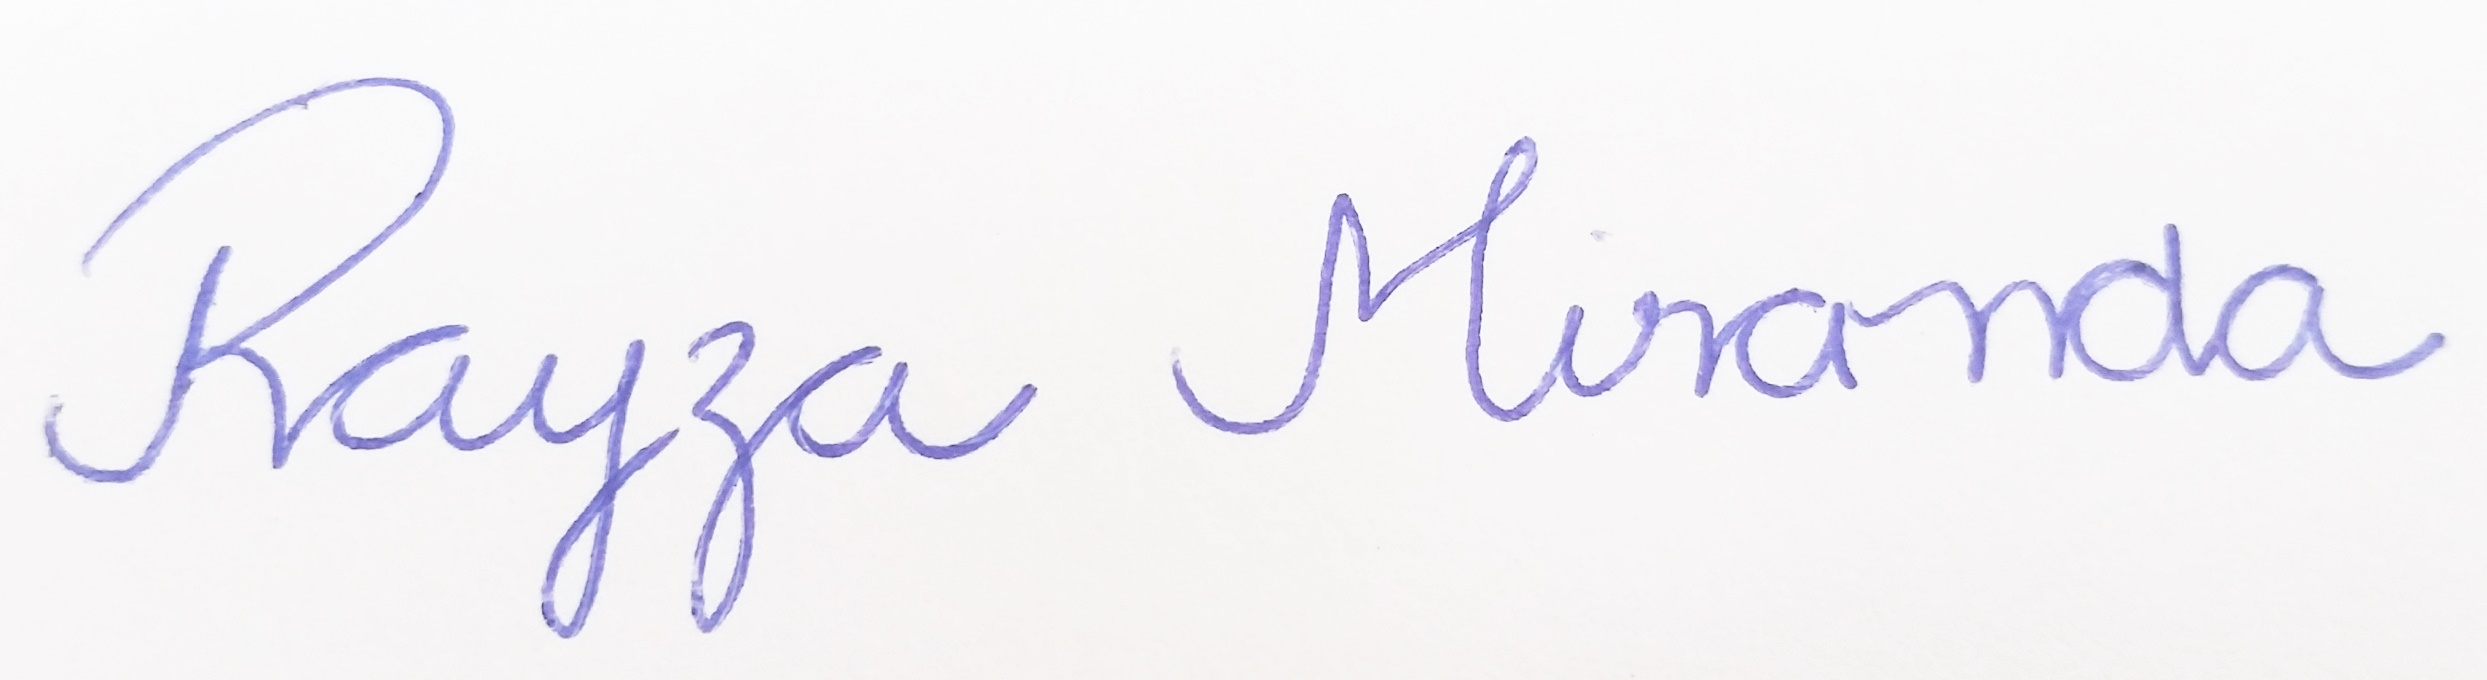 Rayza Miranda